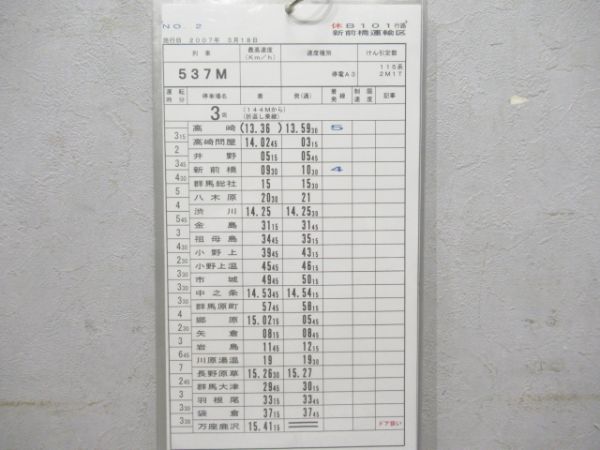 NO. 2 休B101行路
施行日 2007年 3月18日 新前橋運輸区
列車 最高速度(Km/h) 速度種別 けん引定数
537M 停電A3 115系 2M1T
運転時分 停車場名 着 発(通) 着発線 制限速度 記事
3両 (144Mから) (折返し乗継)
高崎 (13.36 ) 13.59 30 5
3 15
高崎問屋 14.02 45 03 15
2
井野 05 15 05 45
3 45
新前橋 09 30 10 30 4
4 30
群馬総社 15 15 30
5
八木原 20 30 21
4
渋川 14.25 14.25 30
5 45
金島 31 15 31 45
3
祖母島 34 45 35 15
4 30
小野上 39 45 43 15
2 30
小野上温 45 45 46 15
3 30
市城 49 45 50 15
3 30
中之条 14.53 45 14.54 15
3 30
群馬原町 57 45 58 15
4
郷原 15.02 15 05 45
2 30
矢倉 08 15 08 45
3
岩島 11 45 12 15
6 45
川原湯温 19 19 30
7
長野原草 15.26 30 15.27
2 45
群馬大津 29 45 30 15
3
羽根尾 33 15 33 45
3 30
袋倉 37 15 37 45
3 30
万座鹿沢 15.41 15 ドア扱い